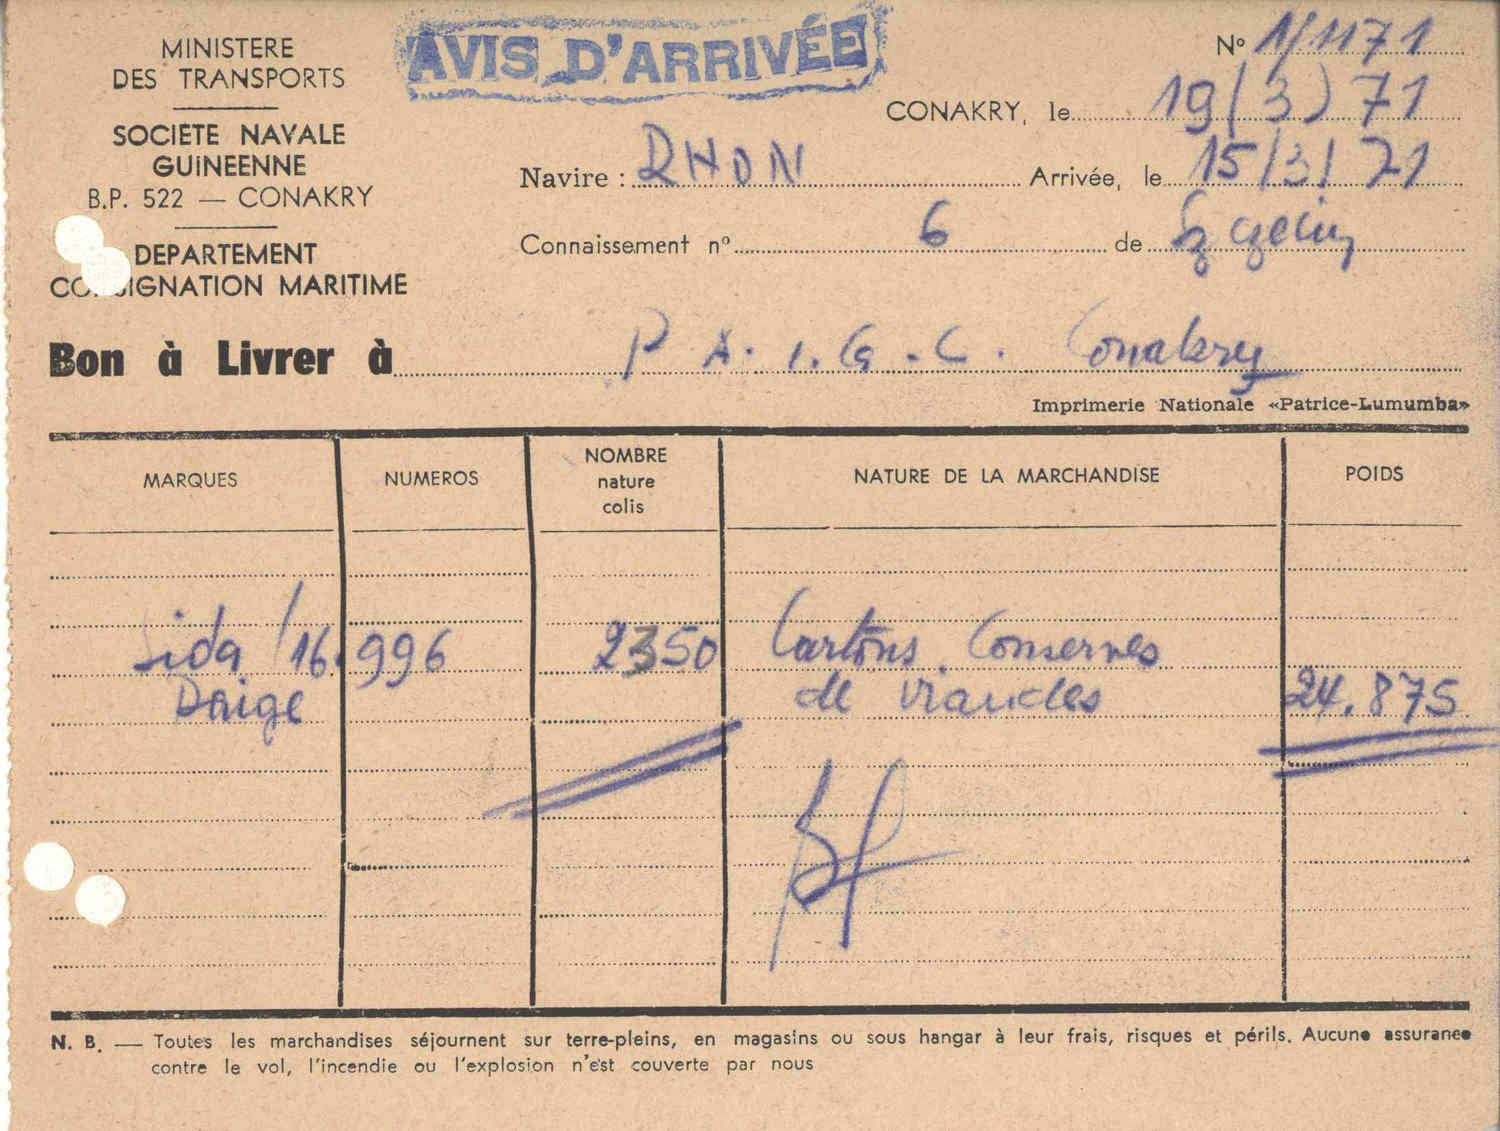 AVIS D'ARRIVÉE
MINISTERE
DES TRANSPORTS
SOCIETE NAVALE
GUINEENNE
B.P. 522 — CONAKRY
DEPARTEMENT
CO SIGNATION MARITIME
N° 1/1171
CONAKRY, le 19/3/71
Navire : RHON Arrivée, le 15/3/71
Connaissement n° 6 de
Bon à Livrer à P.A.I.G.C. Conakry
Imprimerie Nationale «Patrice-Lumumba»
MARQUES NUMEROS NOMBRE nature colis NATURE DE LA MARCHANDISE POIDS
Sida/16.996 2350 Cartons Conserves
de viandes 24.875
N. B. — Toutes les marchandises séjournent sur terre-pleins, en magasins ou sous hangar à leur frais, risques et périls. Aucune assurance
contre le vol, l'incendie ou l'explosion n'est couverte par nous